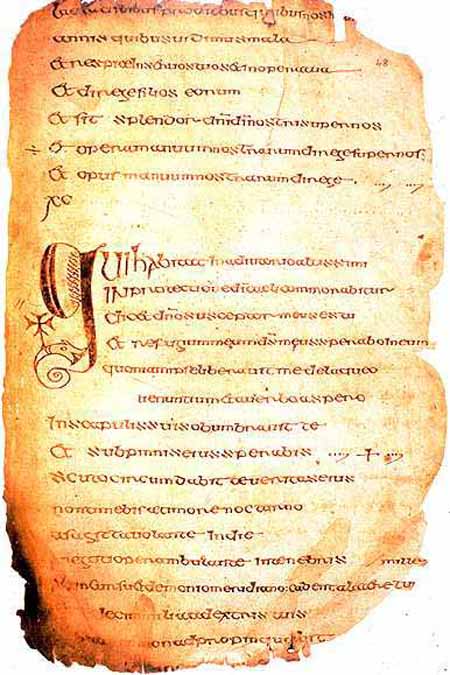 annis quibus uidimus mala
Et respice in seruos tuos et in opera tua 48
Et dirige filios eorum
Et sit splendor dñi dī nostri super nos
÷ Et opera manuum nostrarum dirige super nos:
Et opus manuum nostrarum dirige
xc
Qui habitat in adiutorio altissimi
IN protectione dī caeli commorabitur
Dicet dño susceptor meus es tu
Et refugium meum dš meus sperabo in eum
quoniam ipse liberauit me de laqueo
uenantium et a uerbo aspero
In scapulis suis obumbrauit te
Et sub pinnis eius sperabis
scuto circumdabit te ueritas eius
non timebis a timore nocturno
a sagitta uolante in die
negotio perambulante in tenebris mille
ab incursu et demonio meridiano cadent a latere tuo
decem milia a dextris tuis
non adpropinquabit